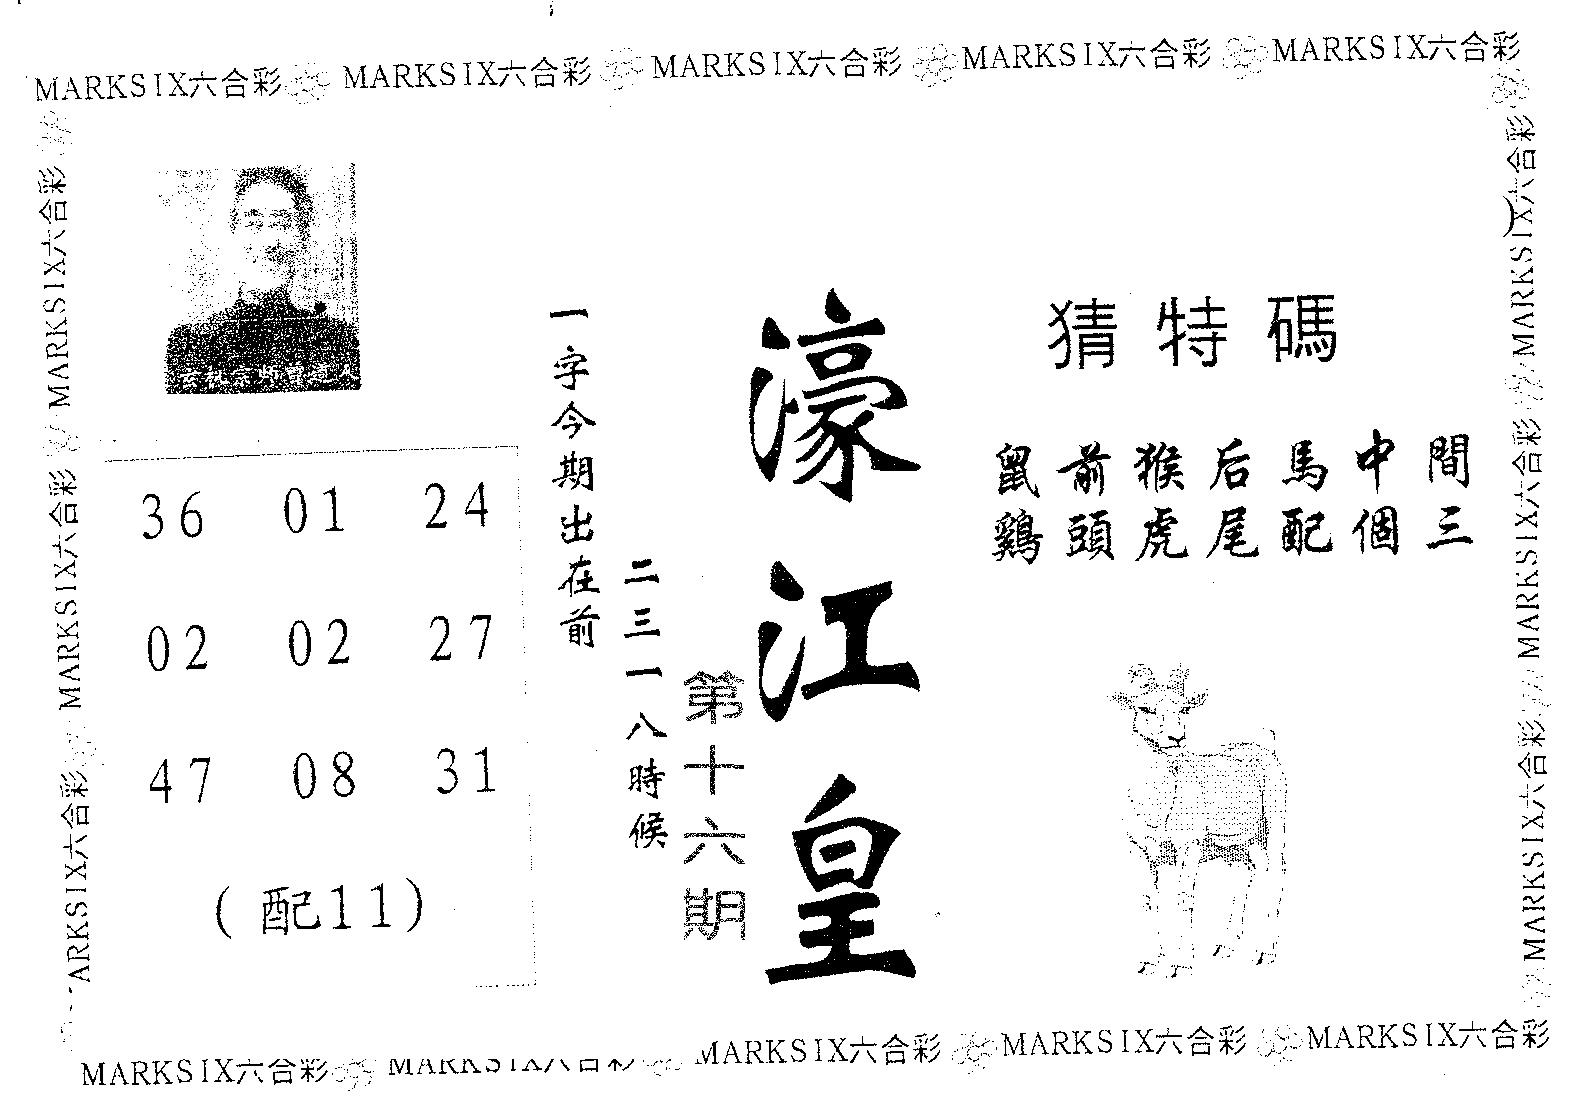 MARKSIX六合彩 MARKSIX六合彩 MARKSIX六合彩 MARKSIX六合彩 MARKSIX六合彩
MARKSIX六合彩
MARKSIX六合彩
ARKSIX六合彩
36 01 24
02 02 27
47 08 31
(配11)
一字今期出在前
二三一八時候
第十六期
濠江皇
猜特碼
鼠前猴后馬中間
鷄頭虎尾配個三
MARKSIX六合彩
MARKSIX六合彩
MARKSIX六合彩
MARKSIX六合彩 MARKSIX六合彩 MARKSIX六合彩 MARKSIX六合彩 MARKSIX六合彩